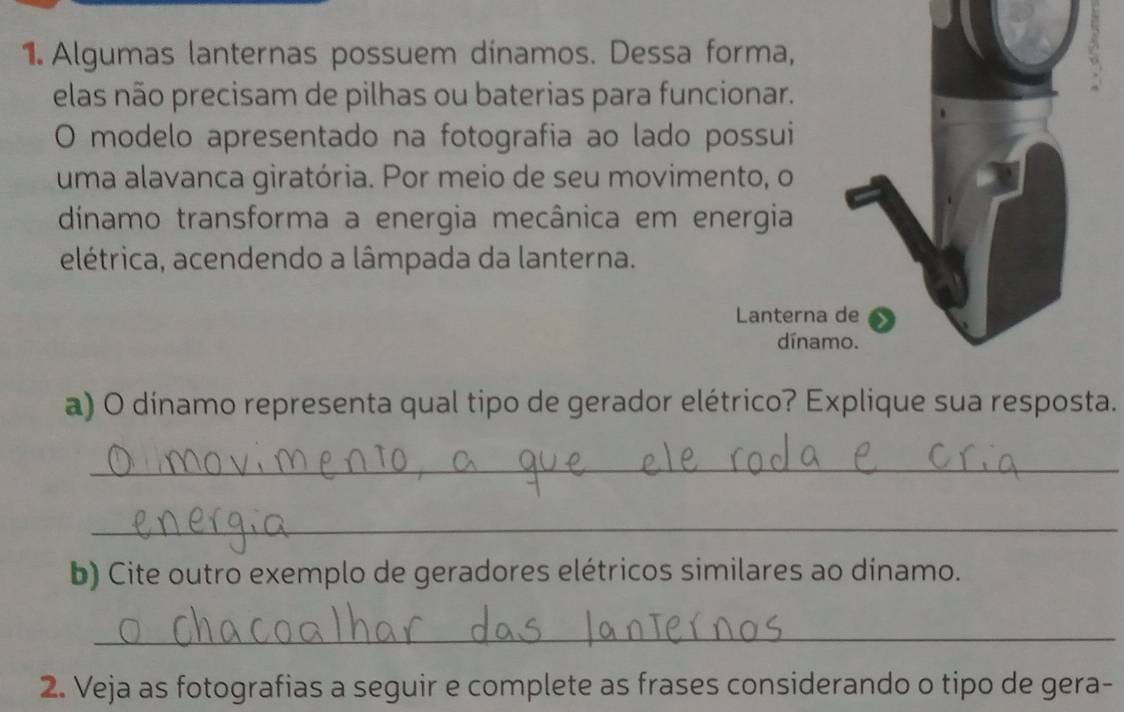 1. Algumas lanternas possuem dínamos. Dessa forma,
elas não precisam de pilhas ou baterias para funcionar.
O modelo apresentado na fotografia ao lado possui
uma alavanca giratória. Por meio de seu movimento, o
dínamo transforma a energia mecânica em energia
elétrica, acendendo a lâmpada da lanterna.
Lanterna de
dínamo.
a) O dínamo representa qual tipo de gerador elétrico? Explique sua resposta.
O movimento, a que ele roda e cria
energia
b) Cite outro exemplo de geradores elétricos similares ao dínamo.
o chacoalhar das lanternas
2. Veja as fotografias a seguir e complete as frases considerando o tipo de gera-